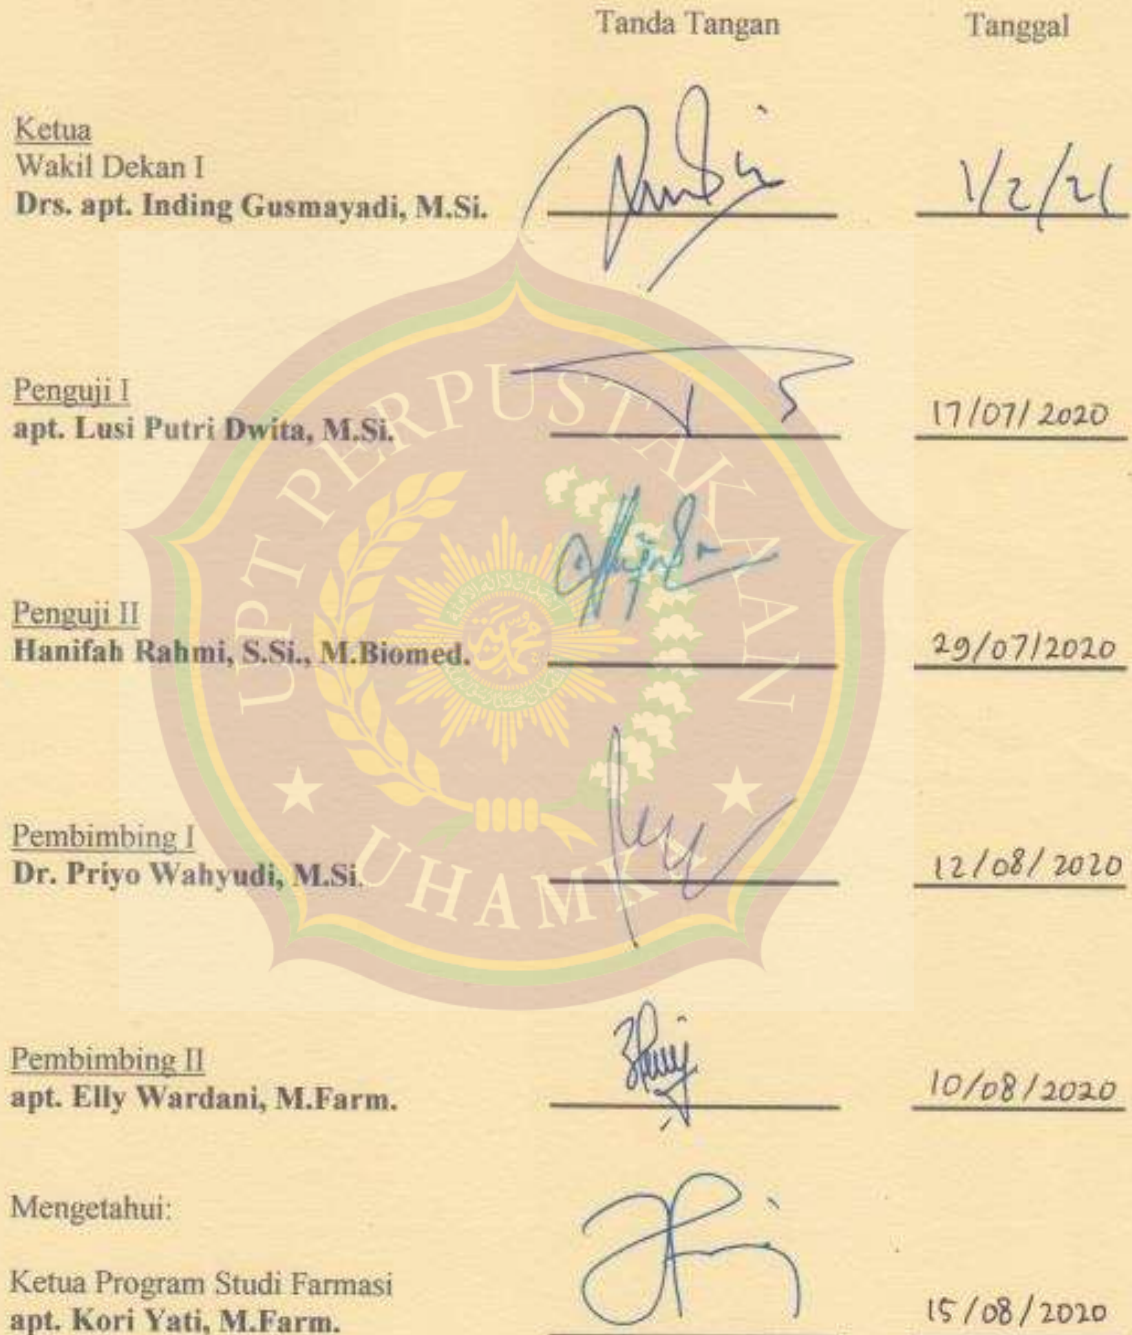 Tanda Tangan Tanggal
Ketua
Wakil Dekan I
Drs. apt. Inding Gusmayadi, M.Si. 1/2/21
Penguji I
apt. Lusi Putri Dwita, M.Si. 17/07/2020
Penguji II
Hanifah Rahmi, S.Si., M.Biomed. 29/07/2020
Pembimbing I
Dr. Priyo Wahyudi, M.Si. 12/08/2020
Pembimbing II
apt. Elly Wardani, M.Farm. 10/08/2020
Mengetahui:
Ketua Program Studi Farmasi
apt. Kori Yati, M.Farm. 15/08/2020
UPT PERPUSTAKAAN
UHAMKA